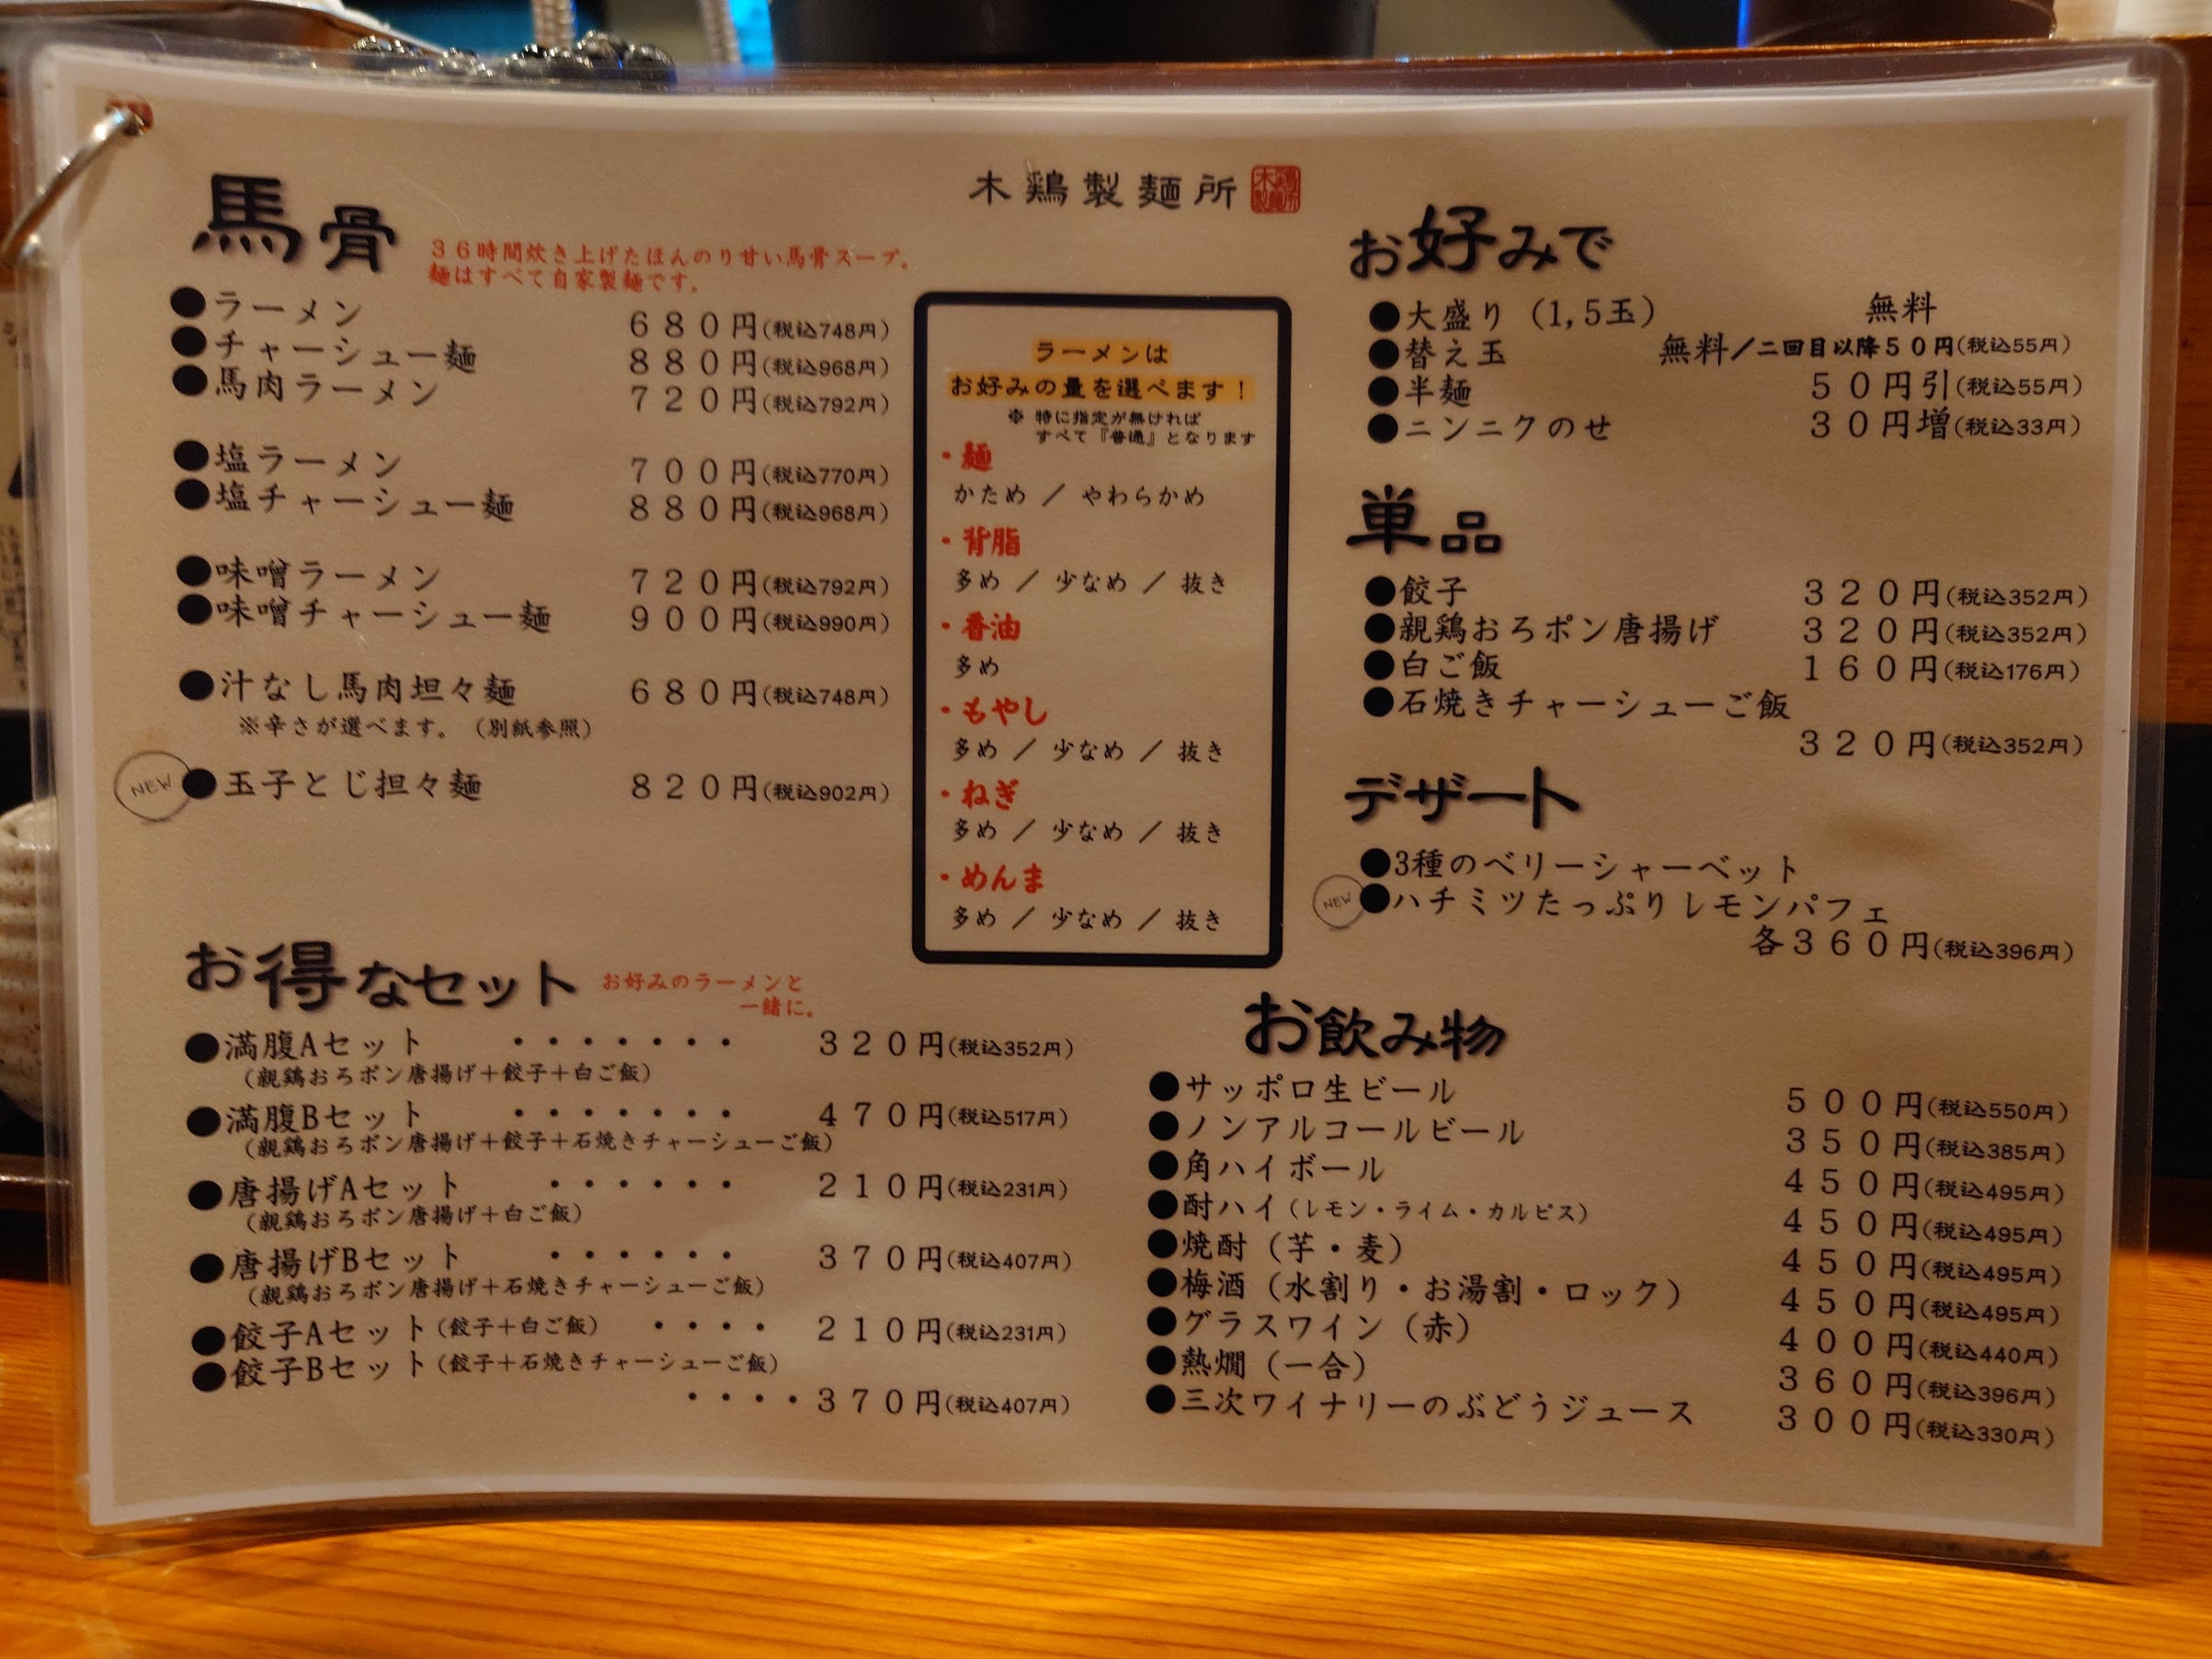 木鶏製麺所
馬骨
36時間炊き上げたほんのり甘い馬骨スープ。
麺はすべて自家製麺です。
●ラーメン 680円(税込748円)
●チャーシュー麺 880円(税込968円)
●馬肉ラーメン 720円(税込792円)
●塩ラーメン 700円(税込770円)
●塩チャーシュー麺 880円(税込968円)
●味噌ラーメン 720円(税込792円)
●味噌チャーシュー麺 900円(税込990円)
●汁なし馬肉坦々麺 680円(税込748円)
※辛さが選べます。(別紙参照)
NEW ●玉子とじ担々麺 820円(税込902円)
お得なセット
お好みのラーメンと
一緒に。
●満腹Aセット ・・・・・・・ 320円(税込352円)
(親鶏おろポン唐揚げ+餃子+白ご飯)
●満腹Bセット ・・・・・・・ 470円(税込517円)
(親鶏おろポン唐揚げ+餃子+石焼きチャーシューご飯)
●唐揚げAセット ・・・・・・ 210円(税込231円)
(親鶏おろポン唐揚げ+白ご飯)
●唐揚げBセット ・・・・・・ 370円(税込407円)
(親鶏おろポン唐揚げ+石焼きチャーシューご飯)
●餃子Aセット(餃子+白ご飯) ・・・・ 210円(税込231円)
●餃子Bセット(餃子+石焼きチャーシューご飯)
・・・・370円(税込407円)
ラーメンは
お好みの量を選べます!
※ 特に指定が無ければ
すべて『普通』となります
・麺
かため / やわらかめ
・背脂
多め / 少なめ / 抜き
・香油
多め
・もやし
多め / 少なめ / 抜き
・ねぎ
多め / 少なめ / 抜き
・めんま
多め / 少なめ / 抜き
お好みで
●大盛り (1,5玉) 無料
●替え玉 無料/二回目以降50円(税込55円)
●半麺 50円引(税込55円)
●ニンニクのせ 30円増(税込33円)
単品
●餃子 320円(税込352円)
●親鶏おろポン唐揚げ 320円(税込352円)
●白ご飯 160円(税込176円)
●石焼きチャーシューご飯
320円(税込352円)
デザート
●3種のベリーシャーベット
NEW ●ハチミツたっぷりレモンパフェ
各360円(税込396円)
お飲み物
●サッポロ生ビール 500円(税込550円)
●ノンアルコールビール 350円(税込385円)
●角ハイボール 450円(税込495円)
●酎ハイ(レモン・ライム・カルピス) 450円(税込495円)
●焼酎 (芋・麦) 450円(税込495円)
●梅酒 (水割り・お湯割・ロック) 450円(税込495円)
●グラスワイン (赤) 400円(税込440円)
●熱燗 (一合) 360円(税込396円)
●三次ワイナリーのぶどうジュース 300円(税込330円)